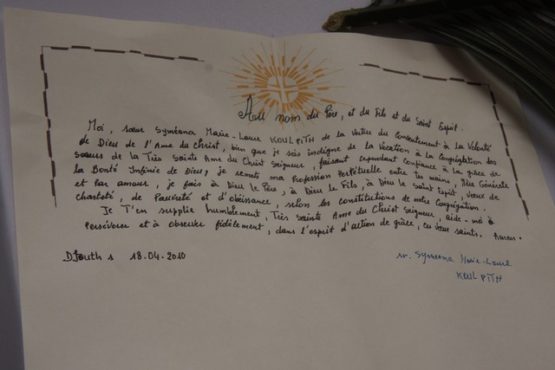 Au nom du Père, et du Fils et du Saint Esprit.
Moi, sœur Syméona Marie-Laure KOULPITH de la Vertu du Consentement à la Volonté
de Dieu de l'Ame du Christ, bien que je sois indigne de la vocation à la Congrégation des
Sœurs de la Très Sainte Ame du Christ Seigneur, faisant cependant confiance à la grâce de
la Bonté Infinie de Dieu, je remets ma Profession Perpétuelle entre tes mains, Mère Générale
et par amour, je fais à Dieu le Père, à Dieu le Fils, à Dieu le Saint Esprit, vœux de
chasteté, de Pauvreté et d'obéissance, selon les constitutions de notre Congrégation.
Je T'en supplie humblement, Très Sainte Ame du Christ Seigneur, aide-moi à
Persévérer et à observer fidèlement, dans l'esprit d'action de grâce, ces vœux saints. Amen.
18.04.2010
sr. Syméona Marie-Laure
KOULPITH